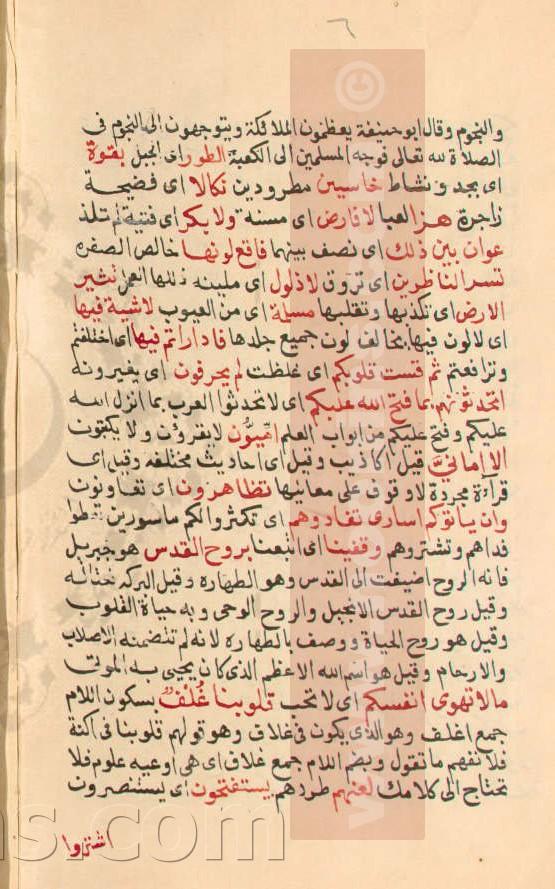 ٦
والنجوم وقال ابو حنيفة يعظمون الملائكة ويتوجهون الى النجوم فى
الصلاة لله تعالى توجه المسلمين الى الكعبة الطور اى الجبل بقوة
اى بجد ونشاط خاسيين مطرودين نكالا اى فضيحة
زاجرة هزا لعبا لا فارض اى مسنة ولا بكر اى فتية لم تلد
عوان بين ذلك اى نصف بينهما فاقع لونها خالص الصفره
تسر الناظرين اى تروق لا ذلول اى ملينه ذللها العمل تثير
الارض اى تكدها وتقلبها مسلمة اى من العيوب لا شية فيها
اى لا لون فيها يخالف لون جميع جلدها فاداراتم فيها اى اختلفتم
وترافعتم ثم قست قلوبكم اى غلظت ثم يحرفون اى يغيرونه
اتحدثونهم بما فتح الله عليكم اى لا تحدثوا العرب بما انزل الله
عليكم وفتح عليكم من ابواب العلم اميون لا يقرؤن ولا يكتبون
الا امانى قيل اكاذيب وقيل اى احاديث مختلفه وقيل اى
قرآءة مجردة لا وقوف على معانيها تظاهرون اى تعاونون
وان ياتوكم اسارى تفادوهم اى تكثروا لكم ماسورين
فداهم وتشتروهم وقفينا اى اتبعنا بروح القدس هو جبريل
فانه الروح اضيفت الى القدس وهو الطهاره وقيل البركه
وقيل روح القدس الانجيل والروح الوحى وبه حياة القلوب
وقيل هو روح الحياة ووصف بالطهاره لانه لم تتضمنه الاصلاب
والارحام وقيل هو اسم الله الاعظم الذى كان يحيى به الموتى
ما لا تهوى انفسكم اى لا تحب قلوبنا غُلْف بسكون اللام
جمع اغلف وهو الذى يكون فى غلاف وهو قولهم قلوبنا فى اكنة
فلا نفهم ما تقول وبضم اللام جمع غلاف اى هى اوعيه علوم فلا
تحتاج الى كلامك لعنهم طردهم يستفتحون اى يستنصرون
اشتروا